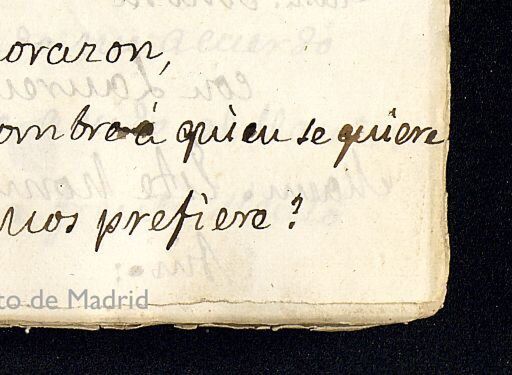 orazon,
ombre á quien se quiere
nos prefiere?
to de Madrid